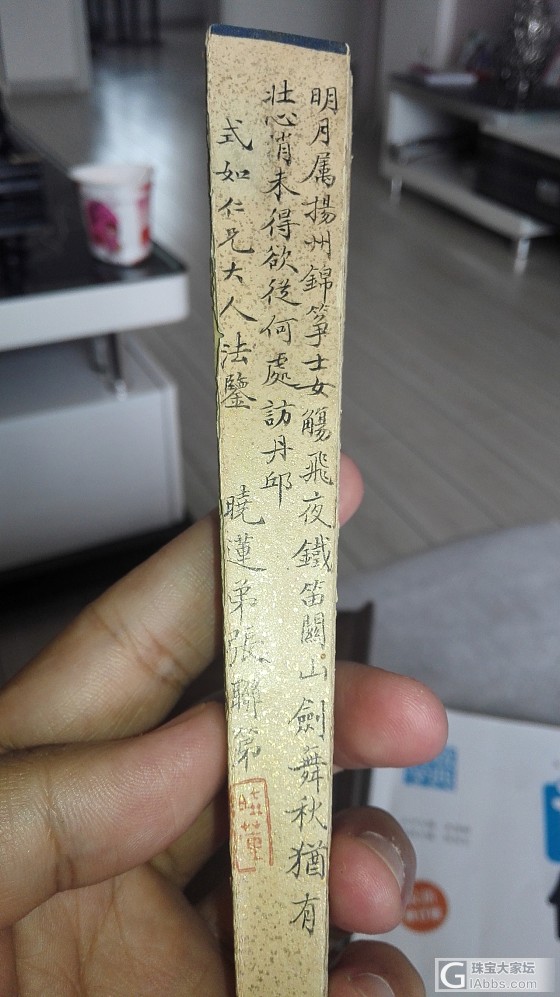 明月属揚州錦箏士女觴飛夜鐵笛關山劍舞秋猶有
壯心肖未得欲從何處訪丹邱
式如仁兄大人法鑒
曉蓮弟張聯第
珠宝大家坛
GIAbbs.com